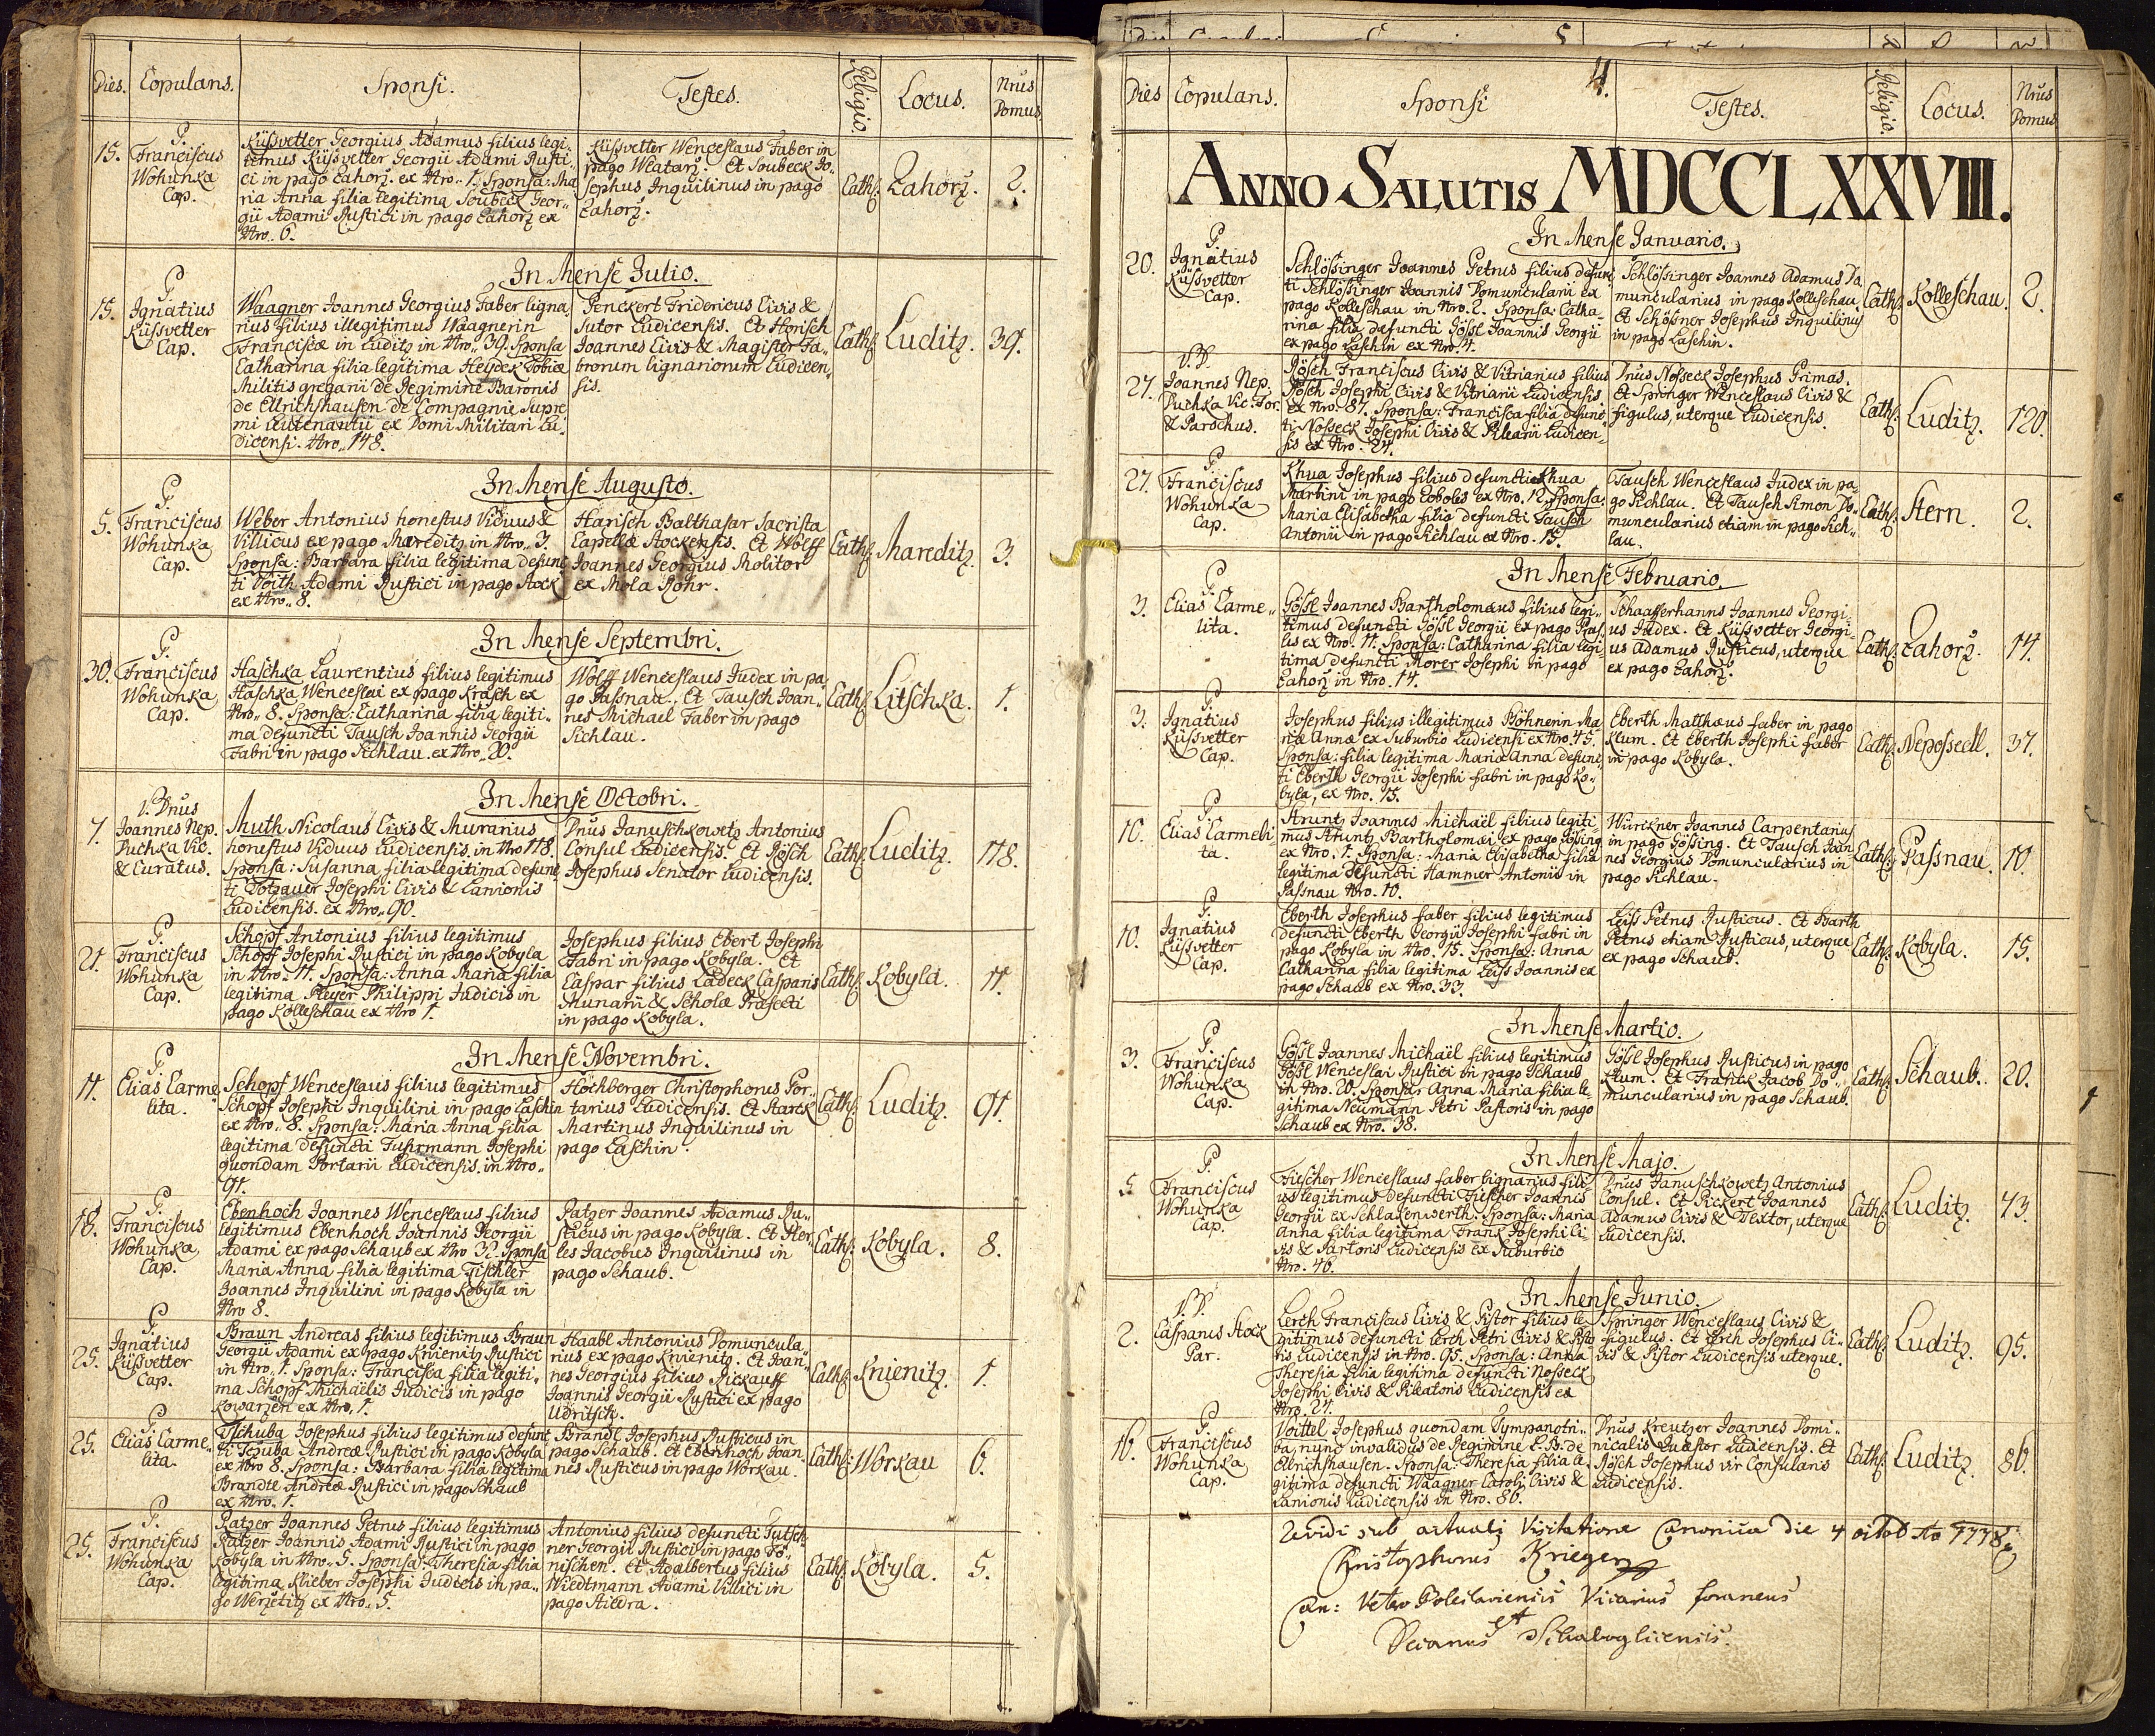 Dies. Copulans. Sponsi. Testes. Religio. Locus. Nrus Domus
15.
P. Franciscus
Wohunka
Cap.
Küssvetter Georgius Adamus filius legi-
timus Küssvetter Georgii Adami Rusti-
ci in pago Zahorz. ex Nro. 1. Sponsa: Ma
ria Anna filia legitima Soubeck Geor-
gii Adami Rustici in pago Zahorz ex
Nro. 6.
Küssvetter Wenceslaus Faber in
pago Mlatarz. Et Soubeck Jo-
sephus Inquilinus in pago
Zahorz.
Cath. Zahorz. 2.
In Mense Julio.
15.
P.
Ignatius
Küssvetter
Cap.
Waagner Joannes Georgius Faber ligna
rius filius illegitimus Waagnerin
Franciscæ in Luditz in Nro. 39. Sponsa
Catharina filia legitima Heydek Tobiæ
Militis gregarii de Regimine Baronis
de Ellrichshausen de Compagnie Supre
mi Leutenantii ex Domi Militari Lu-
dicensi. Nro. 148.
Penckert Fridericus Civis &
Sutor Ludicensis. Et Horisch
Joannes Civis & Magister Fa-
brorum lignariorum Ludicen-
sis.
Cath. Luditz. 39.
In Mense Augusto.
5.
P.
Franciscus
Wohunka
Cap.
Weber Antonius honestus Viduus &
Villicus ex pago Mareditz in Nro. 3.
Sponsa: Barbara filia legitima defunc
ti Voith Adami Rustici in pago Stock
ex Nro. 8.
Harisch Balthasar Sacrista
Capellæ Stockensis. Et Wolff
Joannes Georgius Molitor
ex Mola Rohr.
Cath. Mareditz. 3.
In Mense Septembri.
30.
P.
Franciscus
Wohunka
Cap.
Haschka Laurentius filius legitimus
Haschka Wenceslai ex pago Krasch ex
Nro. 8. Sponsa: Catharina filia legiti-
ma defuncti Tausch Joannis Georgii
Fabri in pago Sichlau. ex Nro. 20.
Wolff Wenceslaus Judex in pa
go Passnau. Et Tausch Joan-
nes Michael Faber in pago
Sichlau.
Cath. Litschka. 1.
In Mense Octobri.
7.
V. Dnus
Joannes Nep.
Puchka Vic.
& Curatus.
Muth Nicolaus Civis & Murarius
honestus Viduus Ludicensis. in Nro 118.
Sponsa: Susanna filia legitima defunc
ti Totzauer Josephi Civis & Lanionis
Ludicensis. ex Nro. 90.
Dnus Januschkowetz Antonius
Consul Ludicensis. Et Rösch
Josephus Senator Ludicensis.
Cath. Luditz. 118.
21.
P.
Franciscus
Wohunka
Cap.
Schopf Antonius filius legitimus
Schopf Josephi Rustici in pago Kobyla
in Nro. 11. Sponsa: Anna Maria filia
legitima Pleyer Philippi Judicis in
pago Kolleschau ex Nro 1.
Josephus filius Ebert Josephi
Fabri in pago Kobyla. Et
Caspar filius Ladeck Casparis
Murarii & Scholæ Præfecti
in pago Kobyla.
Cath. Kobyla. 11.
In Mense Novembri.
11.
P.
Elias Carme
lita.
Schopf Wenceslaus filius legitimus
Schopf Josephi Inquilini in pago Laschin
ex Nro. 8. Sponsa: Maria Anna filia
legitima defuncti Fuhrmann Josephi
quondam Portarii Ludicensis. in Nro.
91.
Hochberger Christophorus Por-
tarius Ludicensis. Et Starck
Martinus Inquilinus in
pago Laschin.
Cath. Luditz. 91.
18.
P.
Franciscus
Wohunka
Cap.
Ebenhoch Joannes Wenceslaus filius
legitimus Ebenhoch Joannis Georgii
Adami ex pago Schaub ex Nro 32. Sponsa
Maria Anna filia legitima Tischler
Joannes Inquilini in pago Kobyla in
Nro 8.
Ratzer Joannes Adamus Ru-
sticus in pago Kobyla. Et Her-
les Jacobus Inquilinus in
pago Schaub.
Cath. Kobyla. 8.
25.
P.
Ignatius
Küssvetter
Cap.
Braun Andreas filius legitimus Braun
Georgii Adami ex pago Knienitz Rustici
in Nro. 1. Sponsa: Francisca filia legiti-
ma Schopf Michaëlis Judicis in pago
Kowarzen ex Nro. 1.
Haabl Antonius Domuncula-
rius ex pago Knienitz. Et Joan-
nes Georgius filius Rickauff
Joannis Georgii Rustici ex pago
Udritsch.
Cath. Knienitz. 1.
25.
P.
Elias Carme-
lita.
Tschuba Josephus filius legitimus defunc
ti Tscuba Andreæ Rustici in pago Kobyla
ex Nro 8. Sponsa: Barbara filia legitima
Brandtl Andreæ Rustici in pago Schaub
ex Nro. 1.
Brandl Josephus Rusticus in
pago Schaub. Et Ebenhoch Joan-
nes Rusticus in pago Workau.
Cath. Workau 6.
25.
P.
Franciscus
Wohunka
Cap.
Ratzer Joannes Petrus filius legitimus
Ratzer Joannis Adami Rustici in pago
Kobyla in Nro. 5. Sponsa: Theresia filia
legitima Klieber Josephi Judicis in pa-
go Werzetitz ex Nro. 5.
Antonius filius defuncti Putsch-
ner Georgii Rustici in pago Tö-
nischen. Et Adalbertus filius
Wiedtmann Adami Villici in
pago Stiedra.
Cath. Kobyla. 5.
4.
Dies Copulans. Sponsi Testes. Religio. Locus. Nrus Domus
ANNO SALUTIS MDCCLXXVIII.
In Mense Januario.
20.
P.
Ignatius
Küssvetter
Cap.
Schlössinger Joannes Petrus filius defunc
ti Schlössinger Joannis Domuncularii ex
pago Kolleschau in Nro. 2. Sponsa: Catha-
rina filia defuncti Gössl Joannis Georgii
ex pago Laschin ex Nro. 4.
Schlössinger Joannes Adamus Do
muncularius in pago Kolleschau
Et Schössner Josephus Inquilinus
in pago Laschin.
Cath. Kolleschau. 2.
27.
V. D.
Joannes Nep.
Puchka Vic: For.
& Parochus.
Rösch Franciscus Civis & Vitriarius filius
Rösch Josephi Civis & Vitriarii Ludicensis.
ex Nro. 87. Sponsa: Francisca filia defunc
ti Nosseck Josephi Civis & Pilearii Ludicen-
sis ex Nro. 24.
Dnus Nosseck Josephus Primas.
Et Springer Wenceslaus Civis &
figulus, uterque Ludicensis.
Cath. Luditz. 120.
27.
P.
Franciscus
Wohunka
Cap.
Khua Josephus filius defuncti Khua
Martini in pago Loboles ex Nro. 12. Sponsa:
Maria Elisabetha filia defuncti Tausch
Antonii in pago Sichlau ex Nro. 15.
Tausch Wenceslaus Judex in pa-
go Sichlau. Et Tausch Simon Do-
muncularius etiam in pago Sich-
lau.
Cath. Stern. 2.
In Mense Februario.
3.
P.
Elias Carme-
lita.
Gössl Joannes Bartholomæus filius legi-
timus defuncti Gössl Georgii ex pago Pras-
les ex Nro. 11. Sponsa: Catharina filia legi-
tima defuncti Morer Josephi in pago
Zahorz in Nro. 14.
Schaafferhanns Joannes Georgi-
us Judex. Et Küssvetter Georgi-
us Adamus Rusticus, uterque
ex pago Zahorz.
Cath. Zahorz. 14.
3.
P.
Ignatius
Küssvetter
Cap.
Josephus filius illegitimus Böhnerin Ma
riæ Annæ ex Suburbio Ludicensi ex Nro. 45.
Sponsa: filia legitima Maria Anna defunc-
ti Eberth Georgii Josephi fabri in pago Ko-
byla, ex Nro. 15.
Eberth Matthæus faber in pago
Klum. Et Eberth Josephi faber
in pago Kobyla.
Cath. Neposedl. 37.
10.
P.
Elias Carmeli
ta.
Strunz Joannes Michaël filius legiti-
mus Strunz Bartholomæi ex pago Gössing
ex Nro. 1. Sponsa: Maria Elisabetha filia
legitima defuncti Hammer Antonii in
Passnau Nro. 10.
Würkner Joannes Carpentarius
in pago Gössing. Et Tausch Joan
nes Georgius Domuncularius in
pago Sichlau.
Cath. Passnau. 10.
10.
P.
Ignatius
Küssvetter
Cap.
Eberth Josephus faber filius legitimus
defuncti Eberth Georgii Josephi fabri in
pago Kobyla in Nro. 15. Sponsa: Anna
Catharina filia legitima Leiss Joannis ex
pago Schaub ex Nro. 33.
Leiss Petrus Rusticus. Et Barth
Petrus etiam Rusticus, uterque
ex pago Schaub.
Cath. Kobyla. 15.
In Mense Martio.
3.
P.
Franciscus
Wohunka
Cap.
Gössl Joannes Michaël filius legitimus
Gössl Wenceslai Rustici in pago Schaub
in Nro. 20. Sponsa: Anna Maria filia le-
gitima Neumann Petri Pastoris in pago
Schaub ex Nro. 38.
Gössl Josephus Rusticus in pago
Klum. Et Jacob Do-
muncularius in pago Schaub.
Cath. Schaub. 20.
In Mense Majo.
5.
P.
Franciscus
Wohunka
Cap.
Fiescher Wenceslaus faber lignarius fili-
us legitimus defuncti Fiescher Joannis
Georgii ex Schlakenwerth. Sponsa: Maria
Anna filia legitima Frank Josephi Ci-
vis & Sartoris Ludicensis ex Suburbio
Nro. 46.
Dnus Januschkowetz Antonius
Consul. Et Pickert Joannes
Adamus Civis & Textor, uterque
Ludicensis.
Cath. Luditz. 43.
In Mense Junio.
2.
V. D.
Casparus Stock
Par.
Lerch Franciscus Civis & Pistor filius le-
gitimus defuncti Lerch Petri Civis & Pisto
ris Ludicensis in Nro. 95. Sponsa: Anna
Theresia filia legitima defuncti Nosseck
Josephi Civis & Pileatoris Ludicensis ex
Nro. 24.
Springer Wenceslaus Civis &
figulus. Et Lerch Josephus Ci-
vis & Pistor Ludicensis uterque.
Cath. Luditz. 95.
16.
P.
Franciscus
Wohunka
Cap.
Voittel Josephus quondam Tympanotri-
ba, nunc invalidus de Regimine L. B. de
Ellrichshausen. Sponsa Theresia filia le-
gitima defuncti Waagner Caroli Civis &
Lanionis Ludicensis in Nro. 86.
Dnus Kreutzer Joannes Domi-
nicalis Quæstor Ludicensis. Et
Rösch Josephus vir Consularis
Ludicensis.
Cath. Luditz. 86.
Revidi sub actuali Visitatione Canonica die 4 octob. Ao 1778.
Christophorus Krieger
Can: Vetero Boleslaviensis Vicarius foraneus
et
Decanus